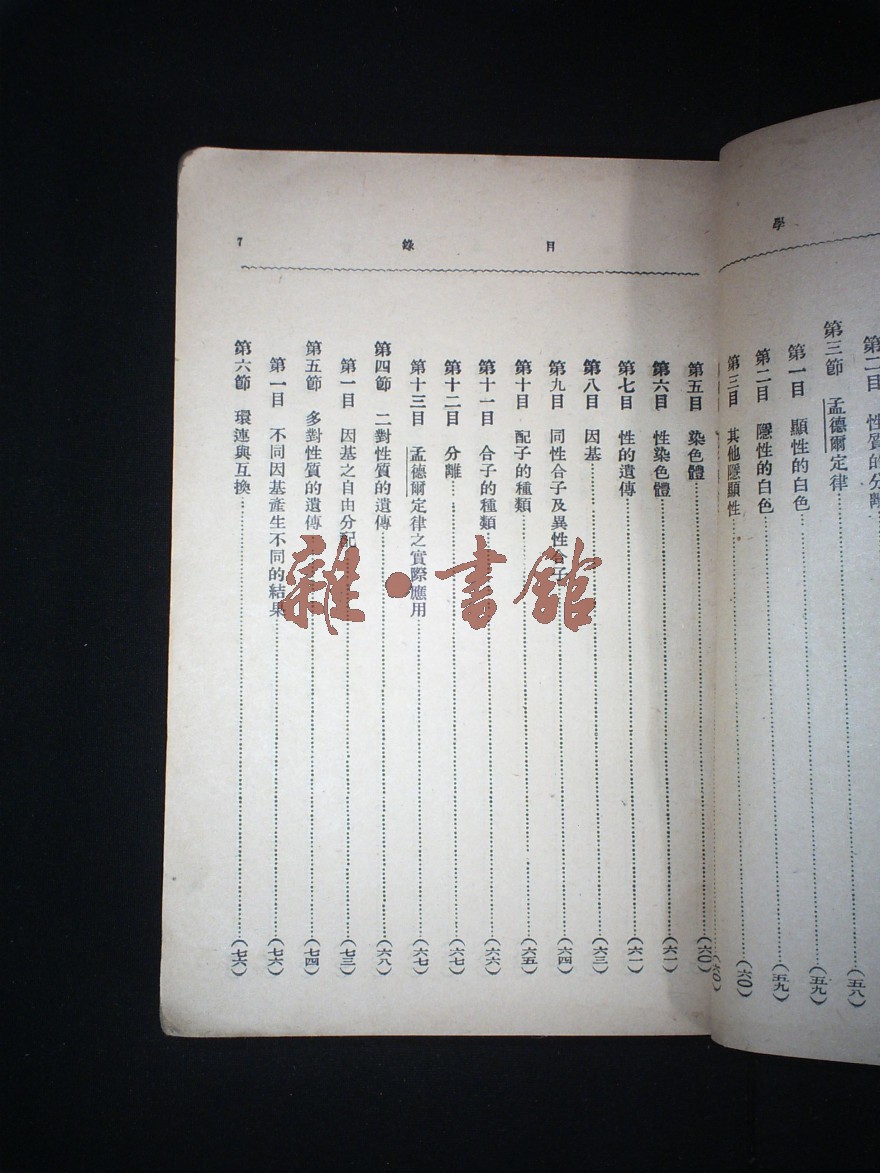 學
第二目 性質的分離
第三節 孟德爾定律……(五八)
第一目 顯性的白色……(五九)
第二目 隱性的白色……(五九)
第三目 其他隱顯性……(六〇)
(六〇)
目錄
7
第五目 染色體……(六〇)
第六目 性染色體……(六一)
第七目 性的遺傳……(六一)
第八目 因基……(六三)
第九目 同性合子及異性合子……(六四)
第十目 配子的種類……(六五)
第十一目 合子的種類……(六六)
第十二目 分離……(六七)
第十三目 孟德爾定律之實際應用……(六七)
第四節 二對性質的遺傳……(六八)
第一目 因基之自由分配……(七三)
第五節 多對性質的遺傳……(七四)
第一目 不同因基產生不同的結果……(七六)
第六節 環連與互換……(七六)
雜·書館